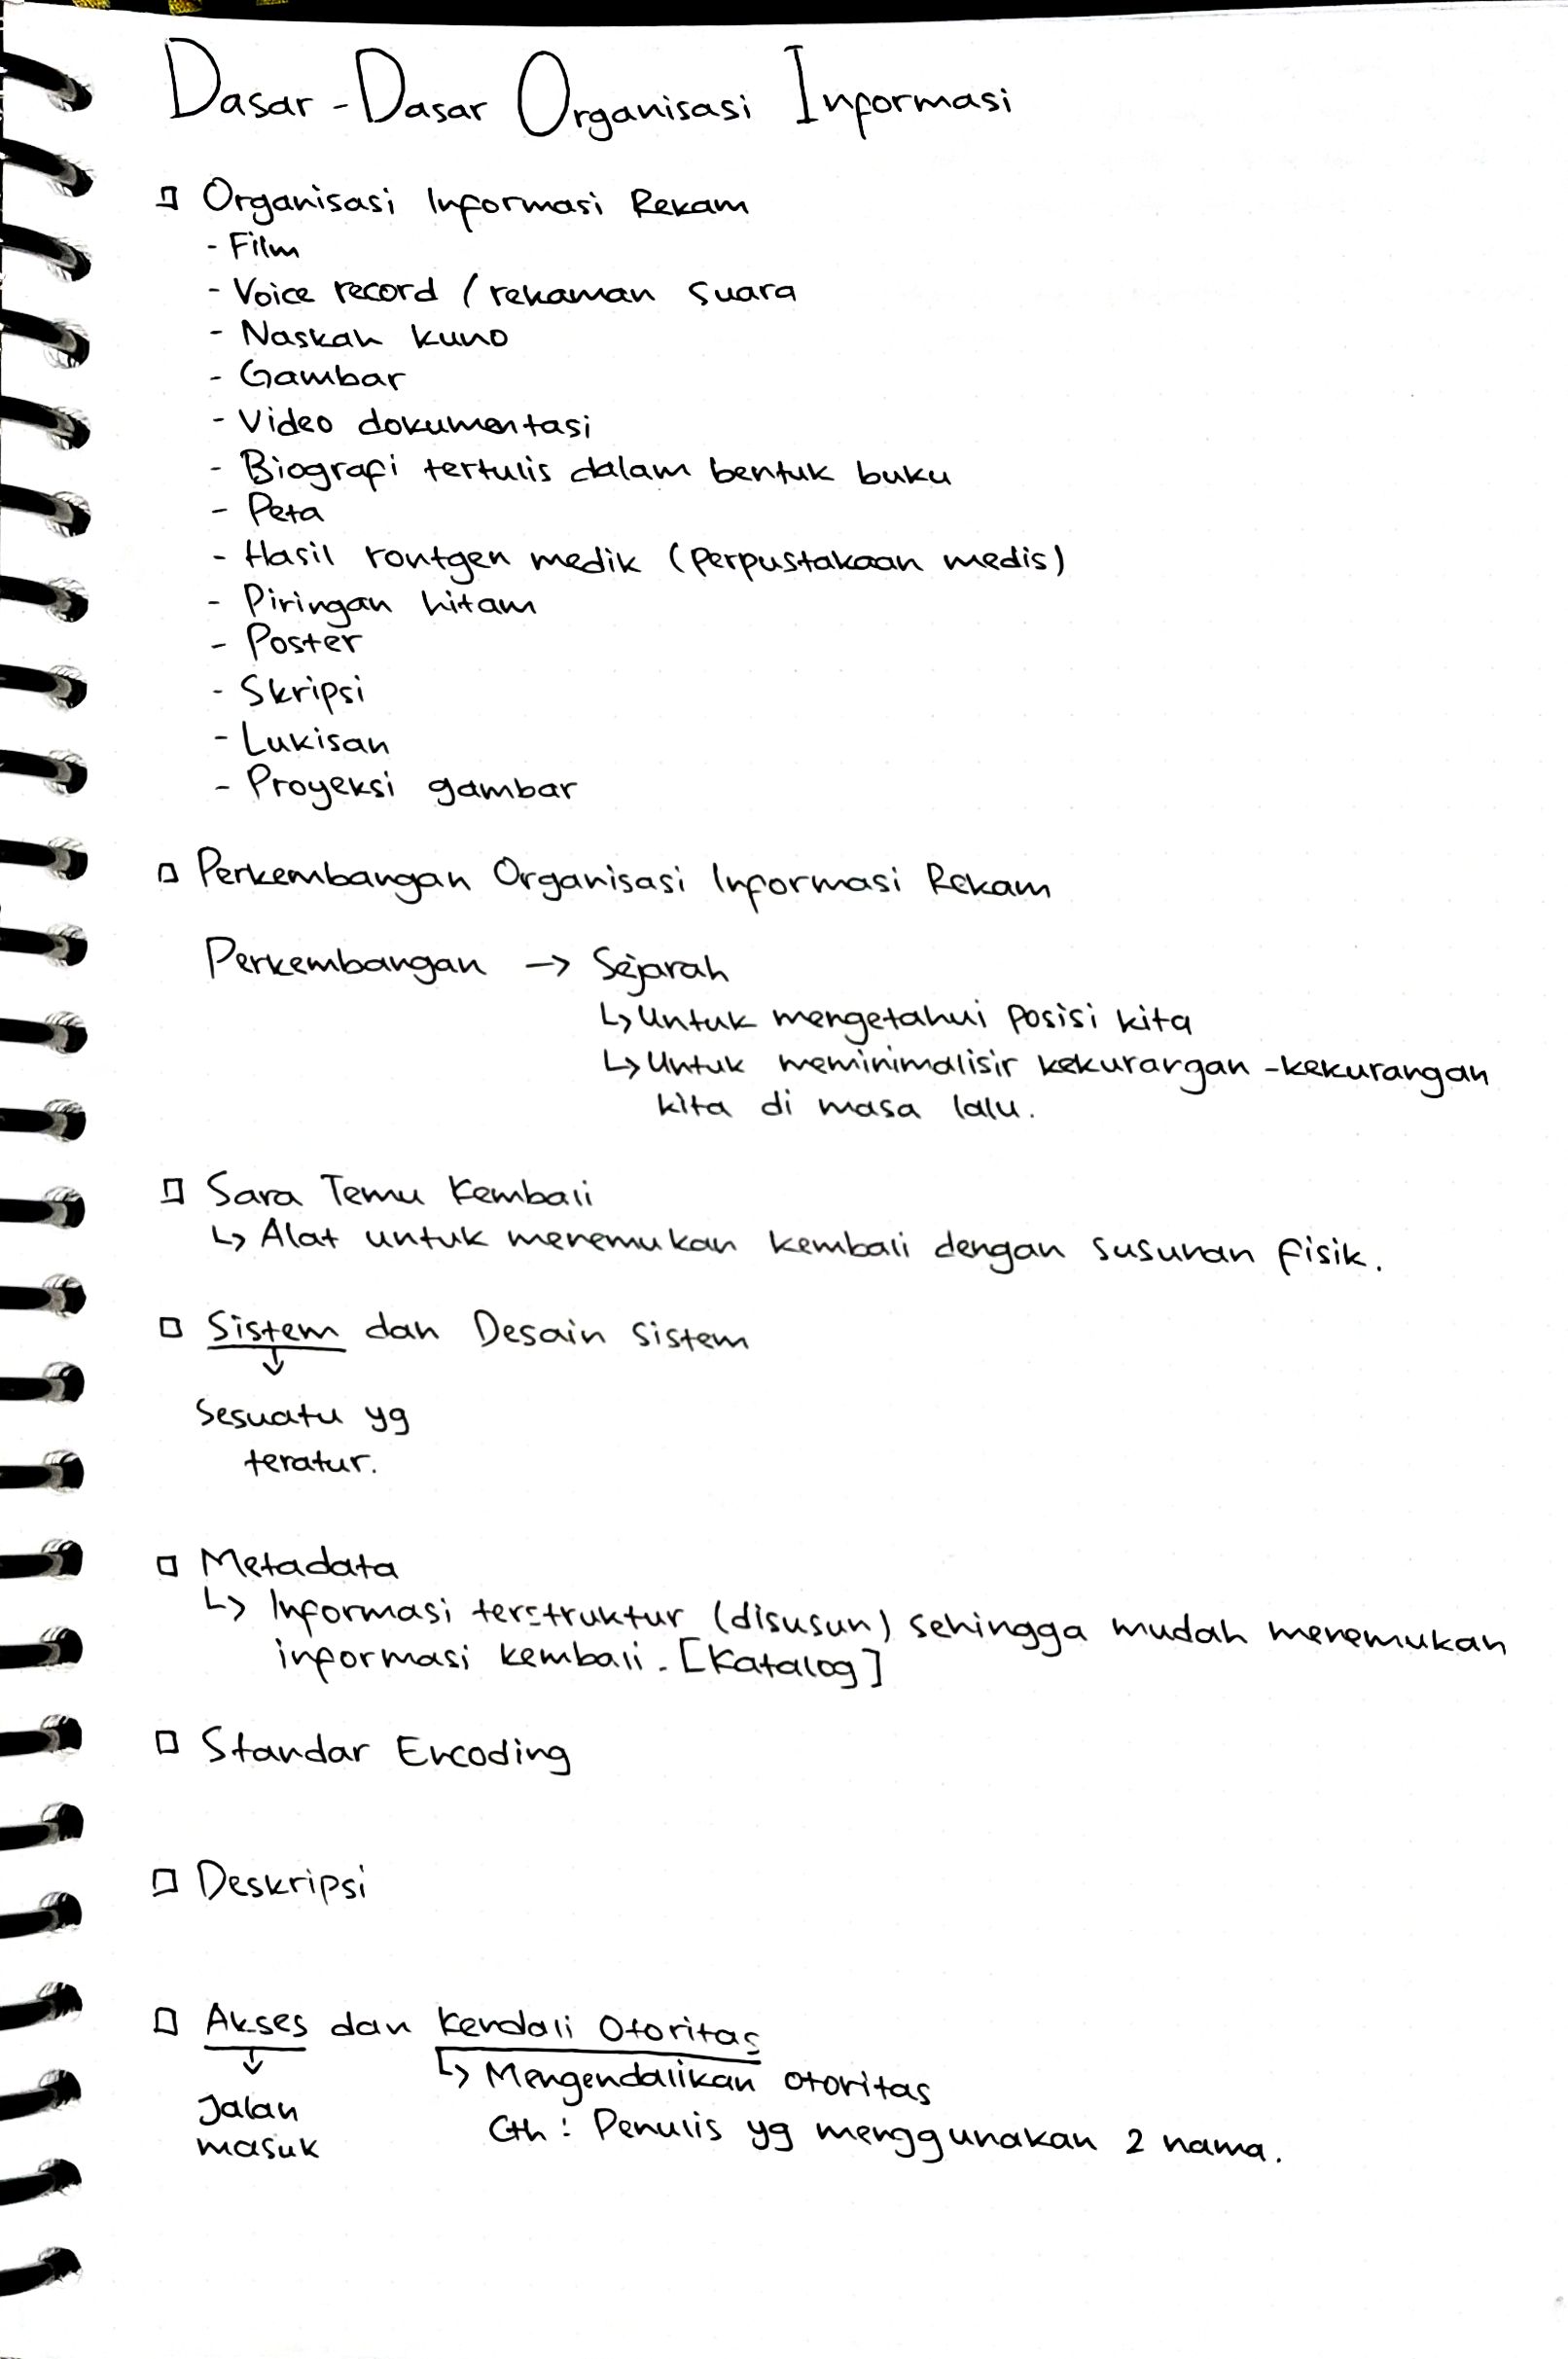 Dasar-Dasar Organisasi Informasi
Organisasi Informasi Rekam
- Film
- Voice record / rekaman suara
- Naskah kuno
- Gambar
- Video dokumentasi
- Biografi tertulis dalam bentuk buku
- Peta
- Hasil rontgen medik (perpustakaan medis)
- Piringan hitam
- Poster
- Skripsi
- Lukisan
- Proyeksi gambar
Perkembangan Organisasi Informasi Rekam
Perkembangan → Sejarah
↳ Untuk mengetahui posisi kita
↳ Untuk meminimalisir kekurangan-kekurangan
kita di masa lalu.
Sara Temu Kembali
↳ Alat untuk menemukan kembali dengan susunan fisik.
Sistem dan Desain Sistem
↓
Sesuatu yg
teratur.
Metadata
↳ Informasi terstruktur (disusun) sehingga mudah menemukan
informasi kembali. [Katalog]
Standar Encoding
Deskripsi
Akses dan Kendali Otoritas
↓ ↳ Mengendalikan otoritas
Jalan
masuk
Cth : Penulis yg menggunakan 2 nama.